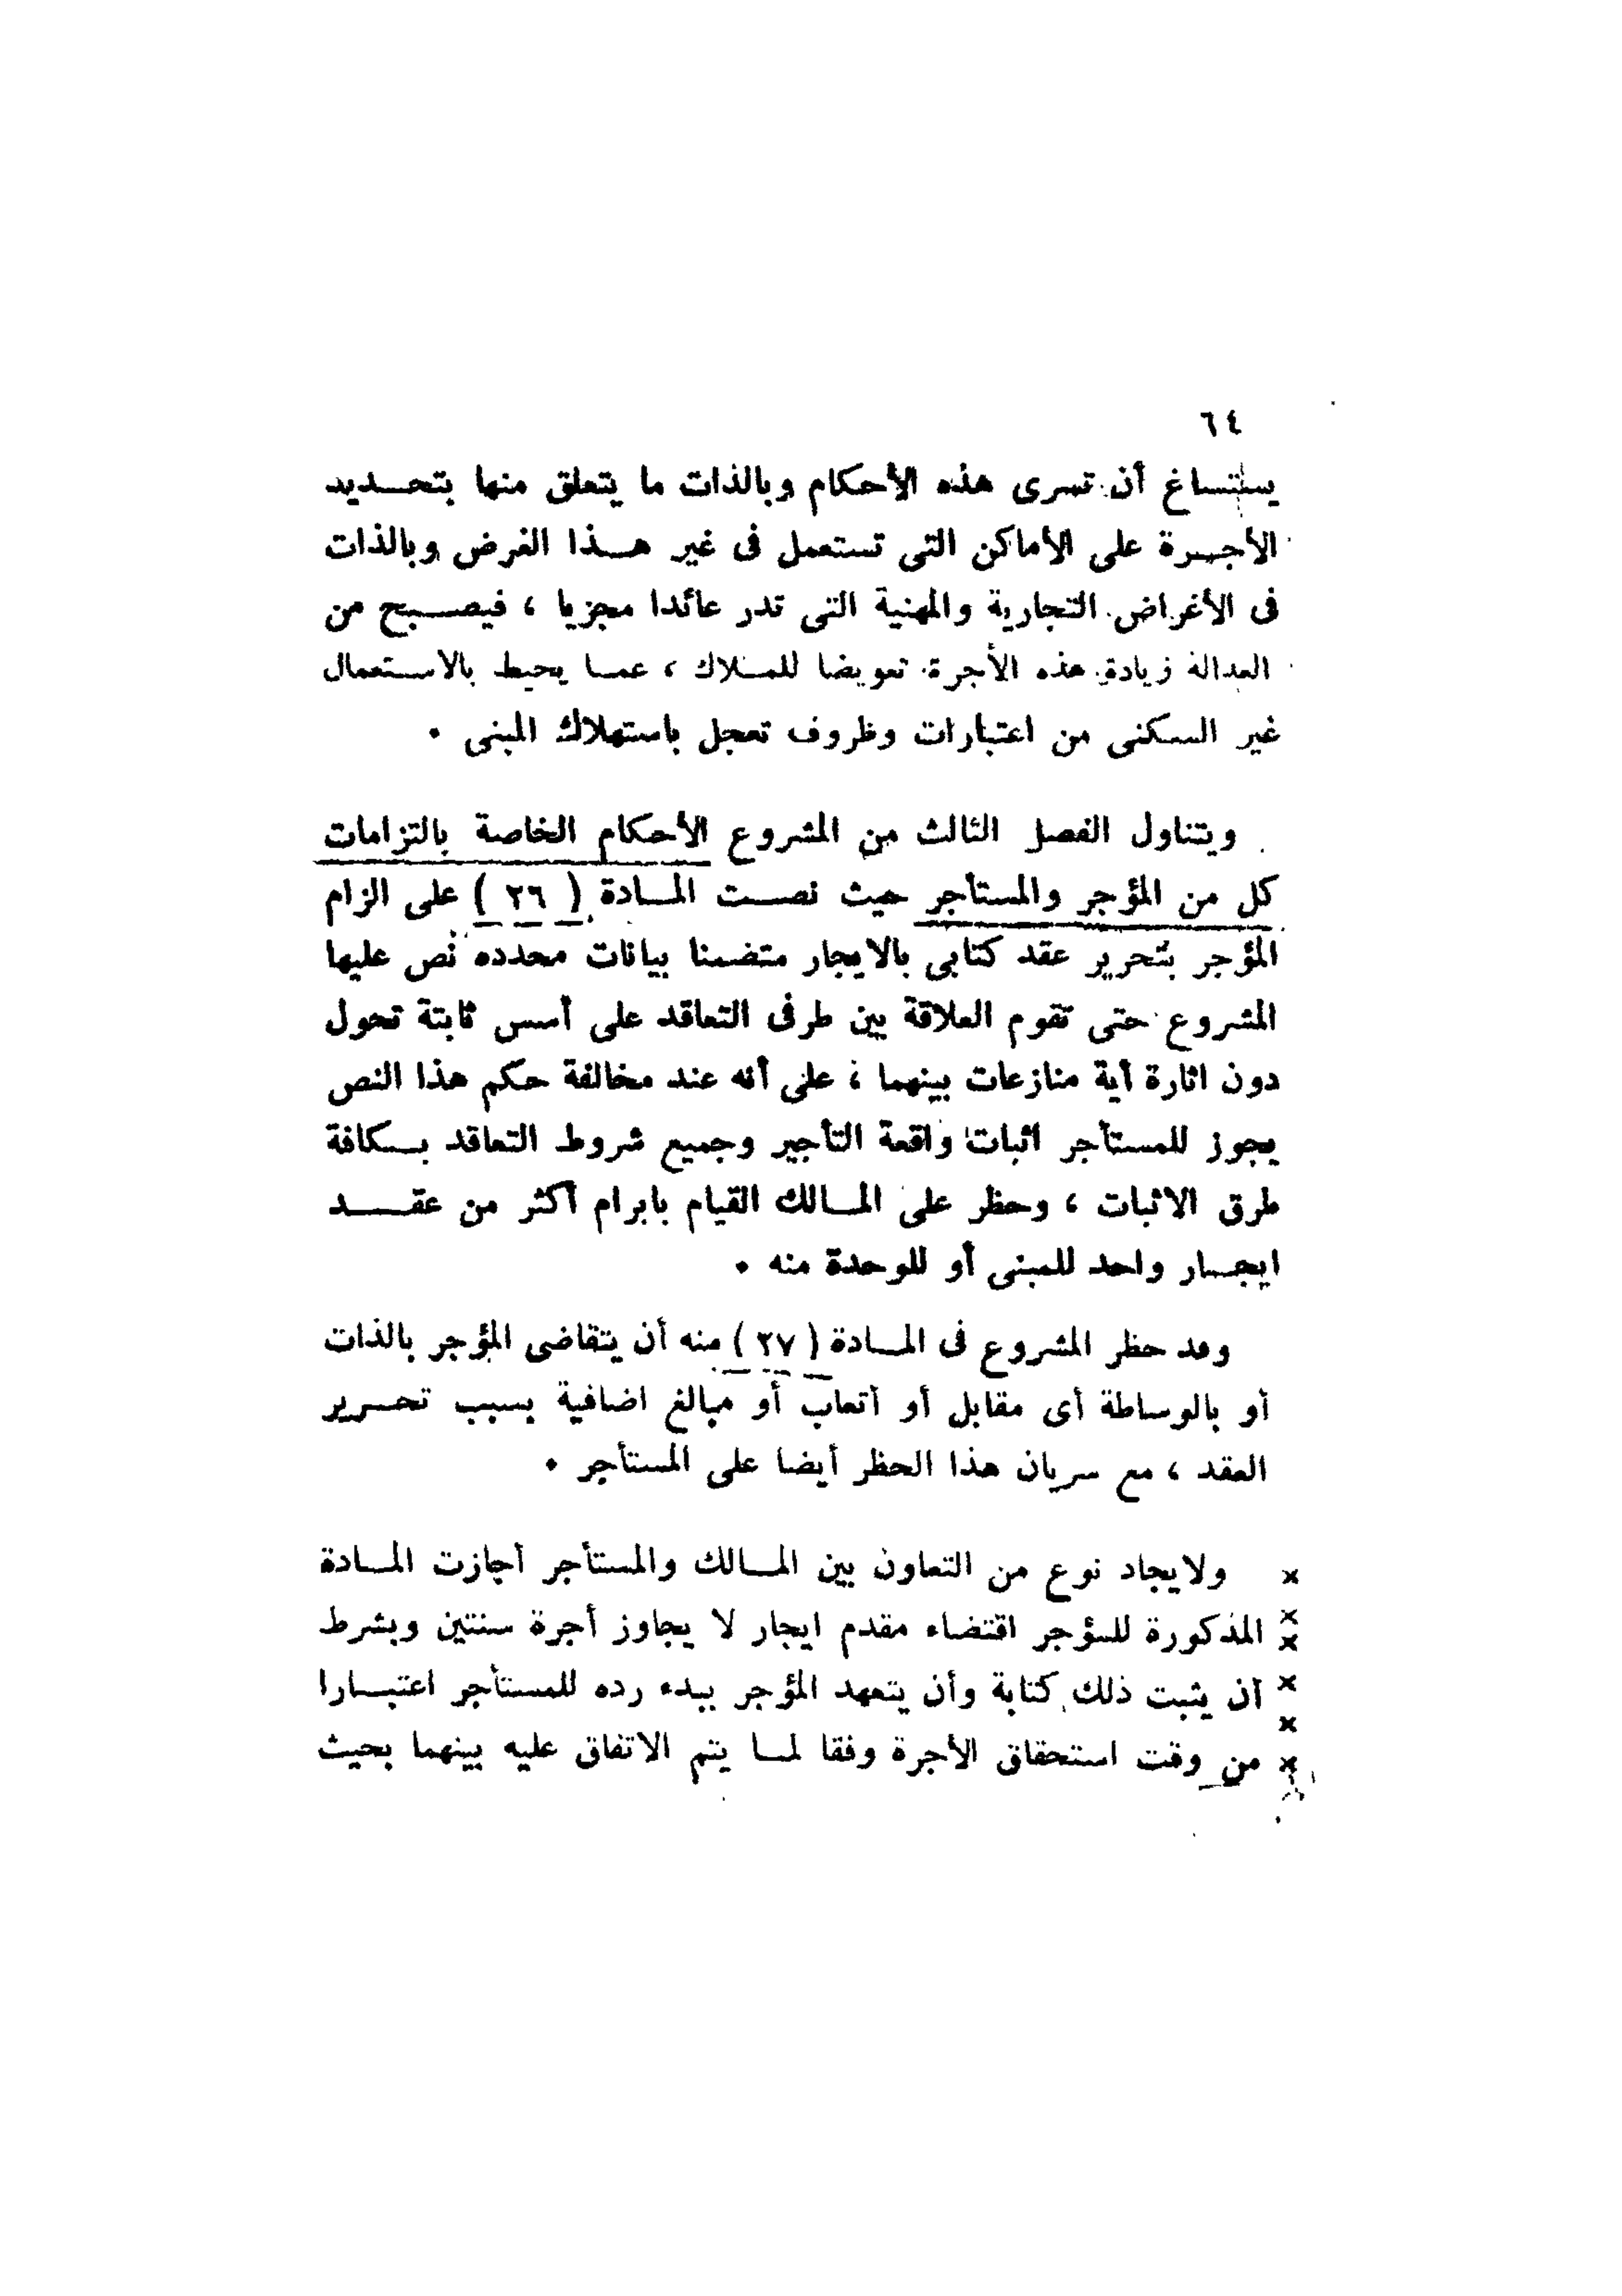 ٦٤
يستساغ أن تسرى هذه الأحكام وبالذات ما يتعلق منها بتحديد
الأجرة على الأماكن التى تستعمل فى غير هذا الغرض وبالذات
فى الأغراض التجارية والمهنية التى تدر عائدا مجزيا ، فيصبح من
العدالة زيادة هذه الأجرة تعويضا للملاك ، عما يحيط بالاستعمال
غير السكنى من اعتبارات وظروف تعجل باستهلاك المبنى .
ويتناول الفصل الثالث من المشروع الأحكام الخاصة بالتزامات
كل من المؤجر والمستأجر حيث نصت المادة ( ٢٦ ) على الزام
المؤجر بتحرير عقد كتابى بالايجار متضمنا بيانات محدده نص عليها
المشروع حتى تقوم العلاقة بين طرفى التعاقد على أسس ثابتة تحول
دون اثارة أية منازعات بينهما ، على أنه عند مخالفة حكم هذا النص
يجوز للمستأجر اثبات واقعة التأجير وجميع شروط التعاقد بكافة
طرق الاثبات ، وحظر على المالك القيام بابرام أكثر من عقد
ايجار واحد للمبنى أو للوحدة منه .
وقد حظر المشروع فى المادة ( ٢٧ ) منه أن يتقاضى المؤجر بالذات
أو بالوساطة أى مقابل أو أتعاب أو مبالغ اضافية بسبب تحرير
العقد ، مع سريان هذا الحظر أيضا على المستأجر .
× ولايجاد نوع من التعاون بين المالك والمستأجر أجازت المادة
× × المذكورة للمؤجر اقتضاء مقدم ايجار لا يجاوز أجرة سنتين وبشرط
× أن يثبت ذلك كتابة وأن يتعهد المؤجر ببدء رده للمستأجر اعتبارا
× × من وقت استحقاق الأجرة وفقا لما يتم الاتفاق عليه بينهما بحيث